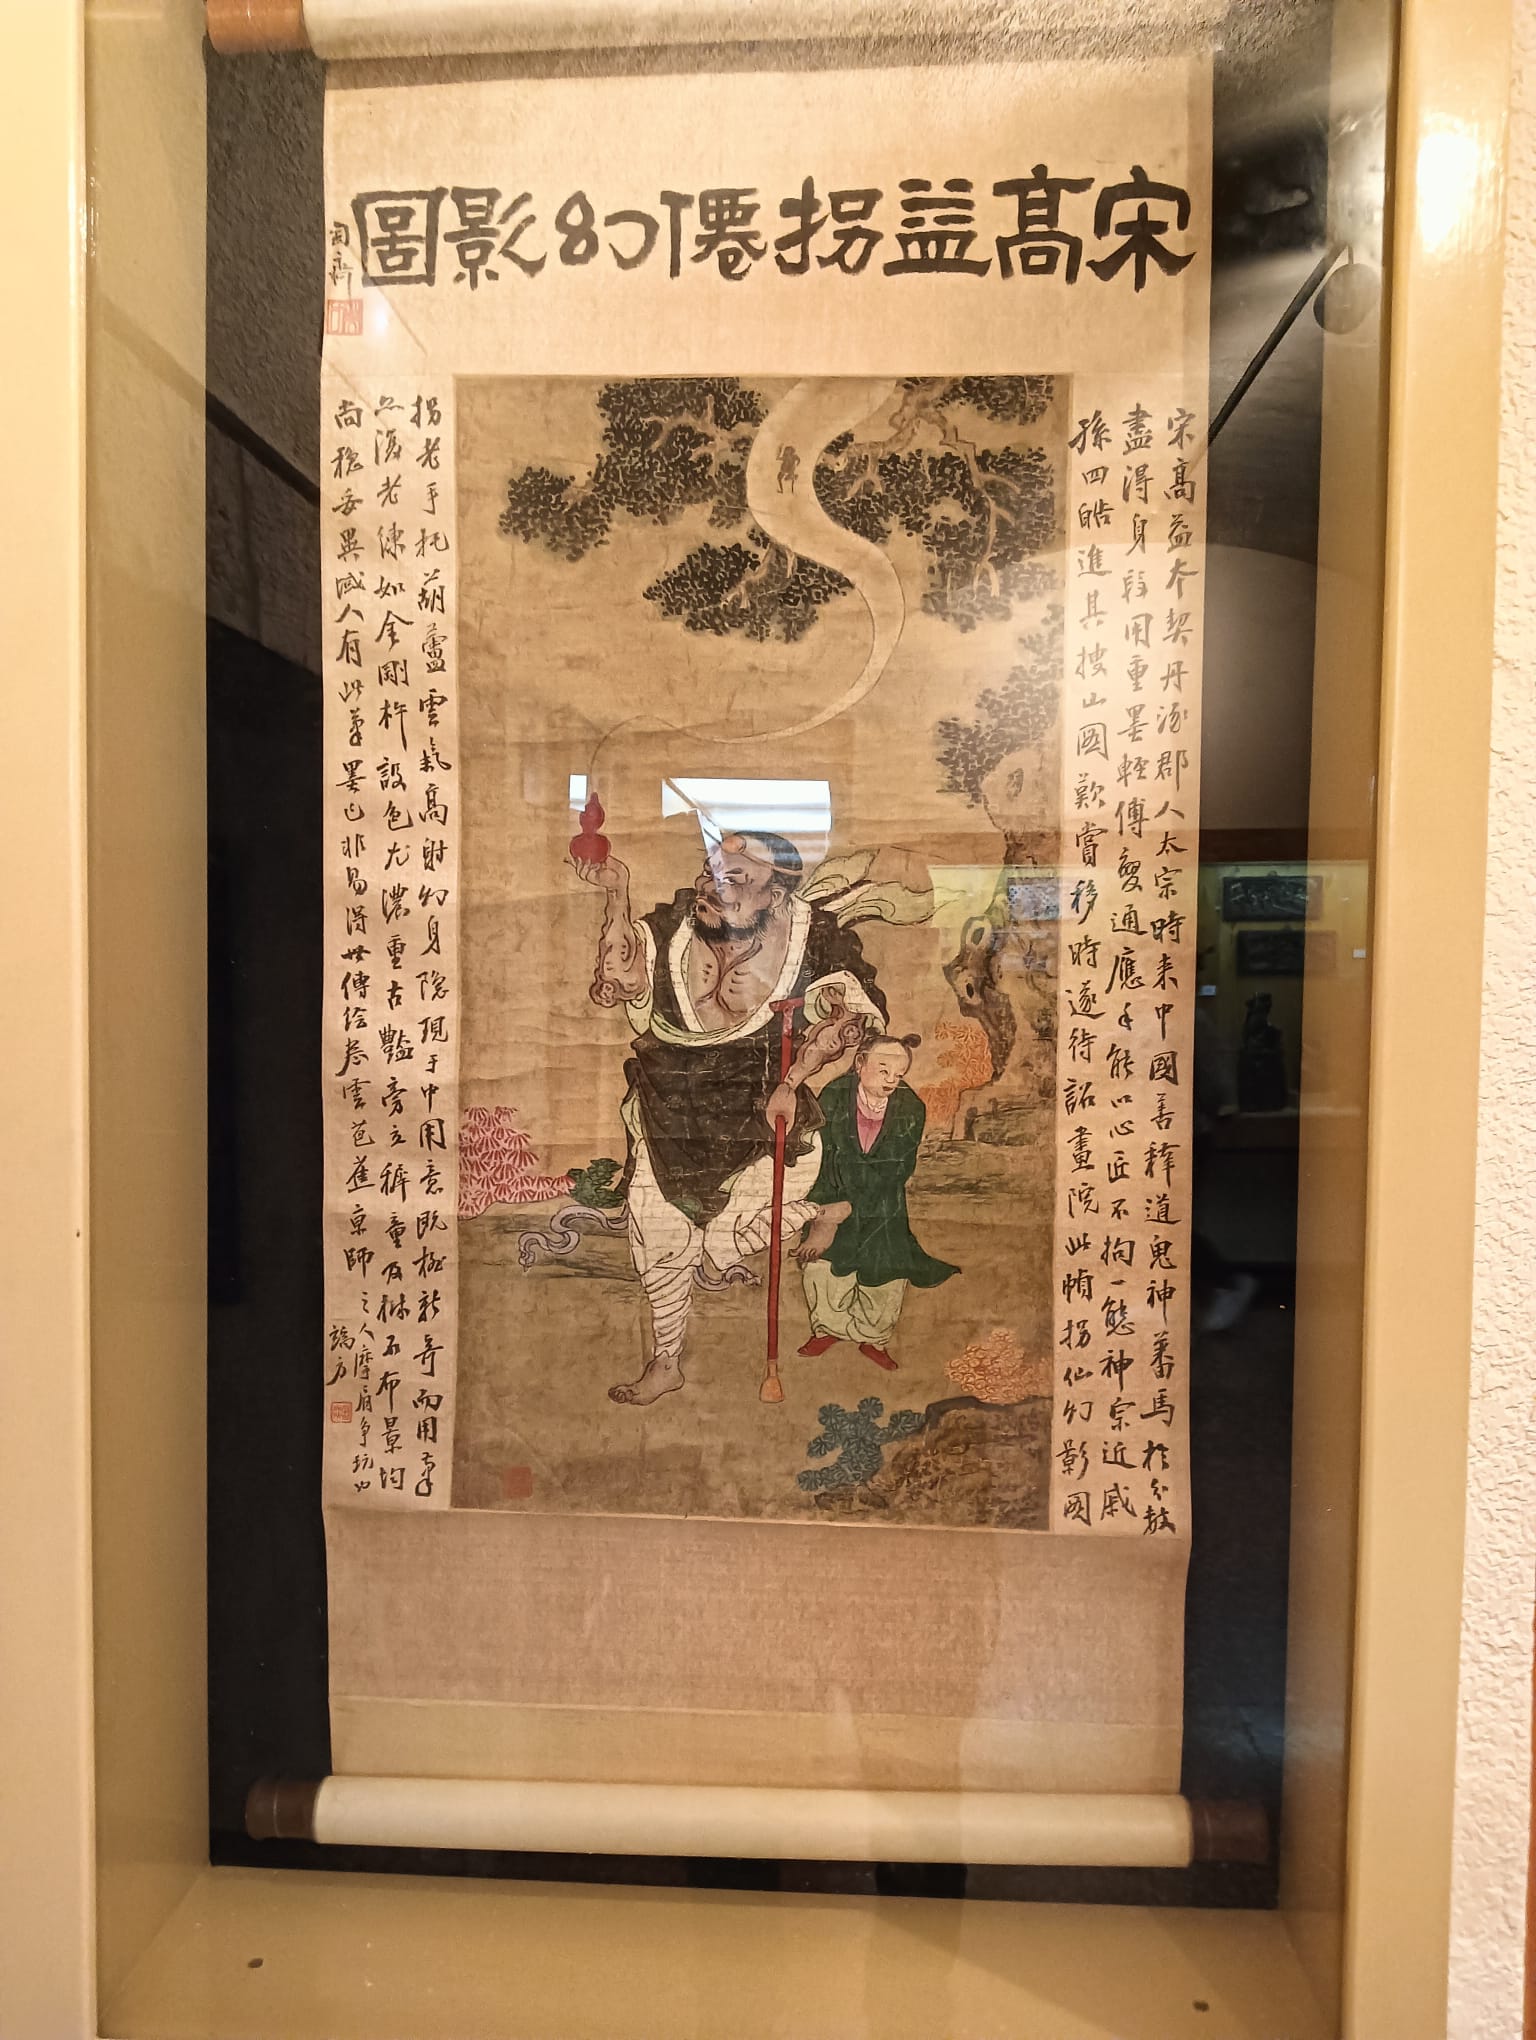 宋髙益拐僊幻影圖
宋高益本契丹涿郡人太宗時来中國善釋道鬼神蕃馬於分数
盡得身段用重墨輕傅變通應手能以心匠不拘一態神宗近戚
孫四皓進其搜山圖歎賞移時遂待詔畫院此幀拐仙幻影圖
拐老手托葫蘆雲氣高射幻身隐現于中用意既極新奇而用筆
亦復老涑如金剛杵設色尤濃重古豔旁立稱童及林石布景均
尚穏妥異域人有此筆墨已非易得世傳绘卷雲芭蕉京師之人摩肩爭玩
端方